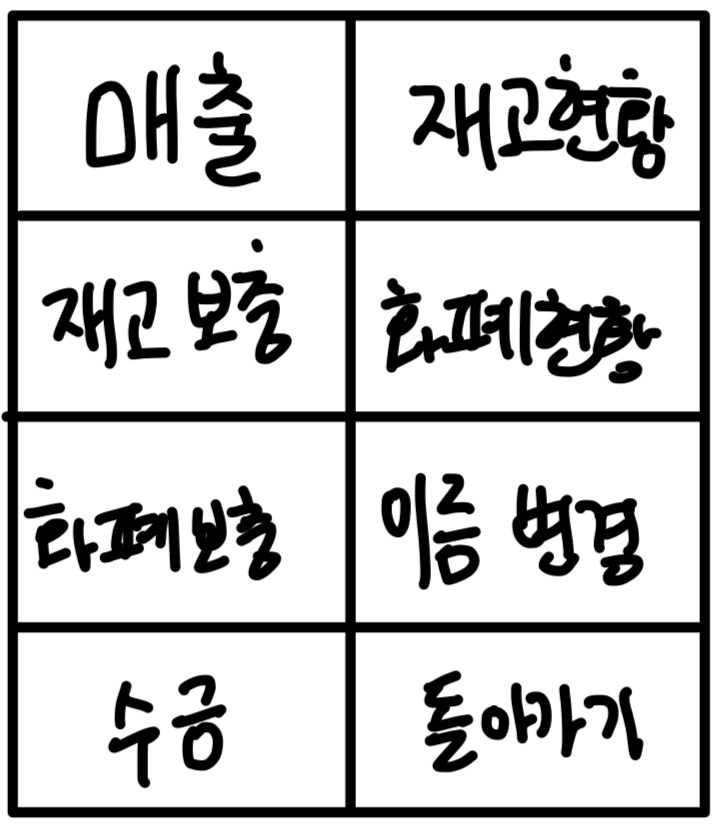 매출
재고현황
재고 보충
화폐현황
화폐보충
이름 변경
수금
돌아가기